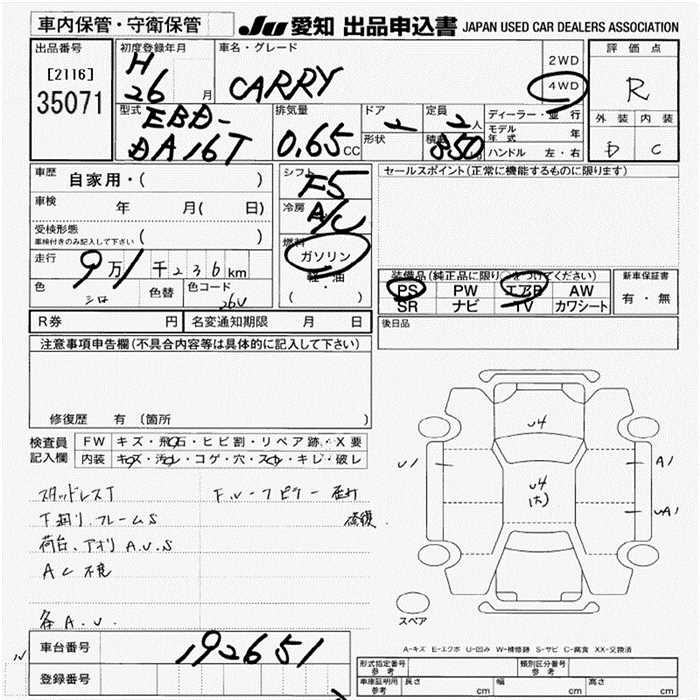 車内保管・守衛保管
JU 愛知 出品申込書 JAPAN USED CAR DEALERS ASSOCIATION
出品番号
[2116]
35071
初度登録年月
H
26 月
車名・グレード
CARRY
2WD
4WD
評価点
R
外装 内装
D C
型式
EBD-
DA16T
排気量
0.65 CC
ドア
2
形状
定員
2人
積載
850
ディーラー・並行
モデル年式 年
ハンドル 左・右
車歴 自家用・( )
車検 年 月( 日)
受検形態
車検付きのみ記入して下さい ( )
走行 9万1千236km
色 シロ
色替
色コード 26U
シフト F5
冷房 A/C
燃料
ガソリン
軽・油
( )
セールスポイント(正常に機能するものに限ります)
装備品(純正品に限り○をつけてください)
PS PW エアB AW
SR ナビ TV カワシート
新車保証書
有・無
R券 円 名変通知期限 月 日
後日品
注意事項申告欄(不具合内容等は具体的に記入して下さい)
修復歴 有(箇所 )
検査員記入欄
FW キズ・飛石・ヒビ割・リペア跡・X要
内装 キズ・汚レ・コゲ・穴・スレ・キレ・破レ
スタッドレスT
下廻り、フレームS
荷台、アオリ A.U.S
AC不良
各A.U.
修復
U4
U4
(大)
U1
A1
UA1
スペア
A-キズ E-エクボ U-凹み W-補修跡 S-サビ C-腐食 XX-交換済
車台番号 192651
登録番号
形式指定番号 参考
類別区分番号 参考
車庫証明用 参考
長さ cm 幅 cm 高さ cm